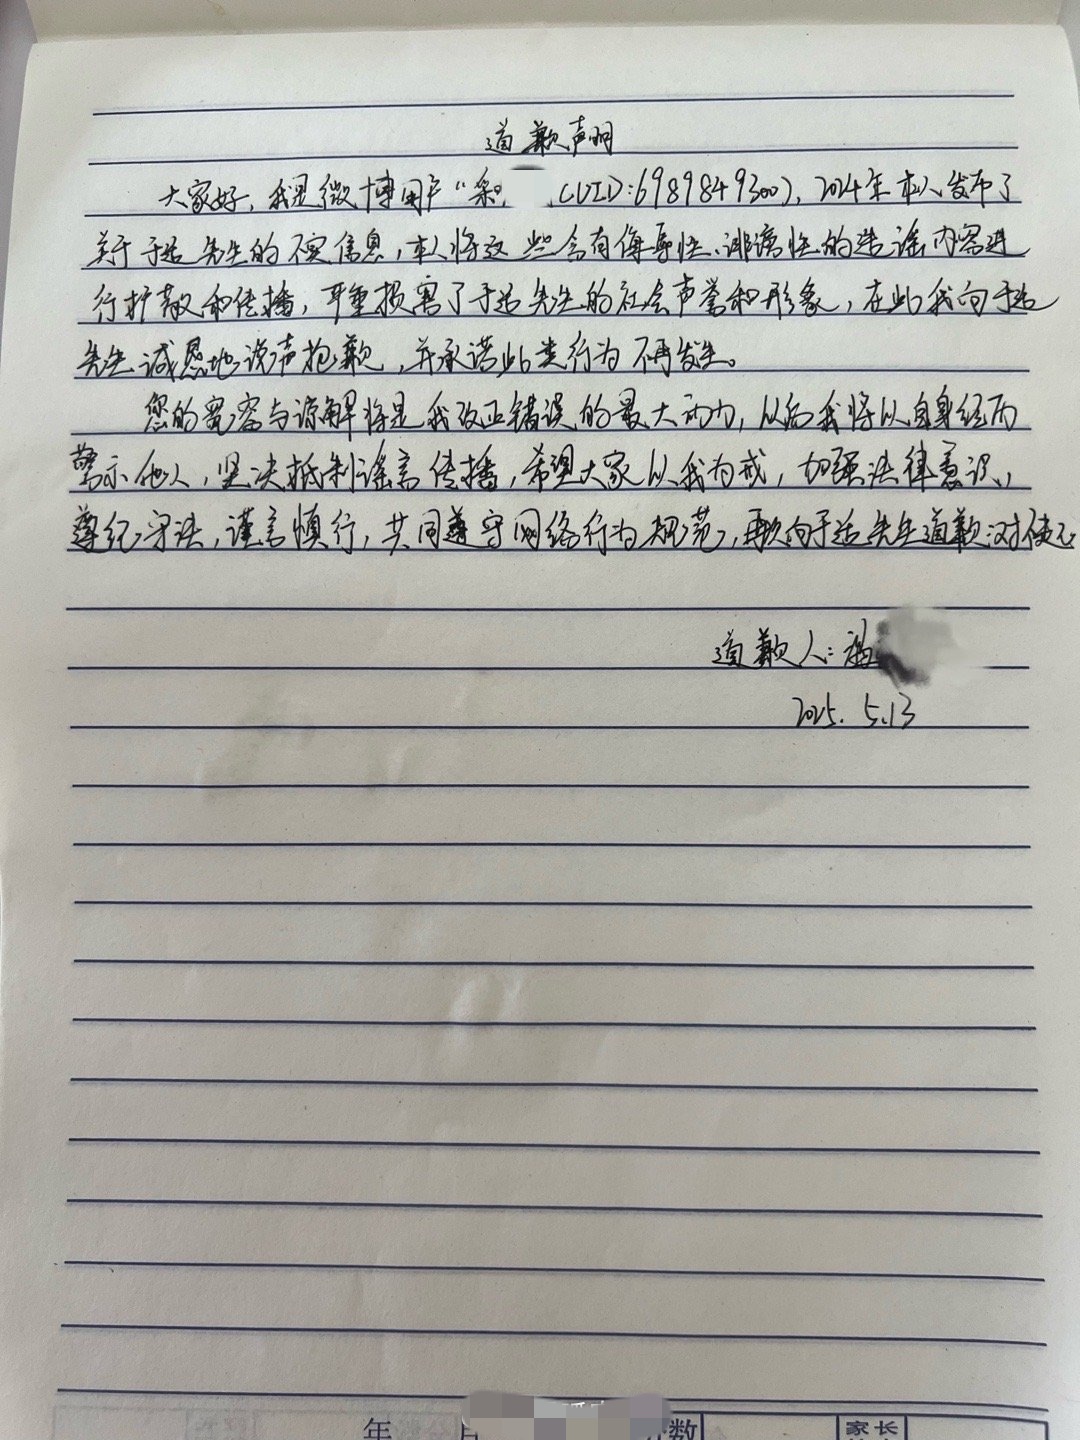 道歉声明
大家好，我是微博用户“梁 (UID:6989849300)，2024年本人发布了
关于于适先生的不实信息，本人将这些含有侮辱性、诽谤性的造谣内容进
行扩散和传播，严重损害了于适先生的社会声誉和形象，在此我向于适
先生诚恳地说声抱歉，并承诺此类行为不再发生。
您的宽容与谅解将是我改正错误的最大动力，以后我将以自身经历
警示他人，坚决抵制谣言传播，希望大家以我为戒，加强法律意识，
遵纪守法，谨言慎行，共同遵守网络行为规范，再次向于适先生道歉：对使不
道歉人：
2025. 5.13
年
数
家长